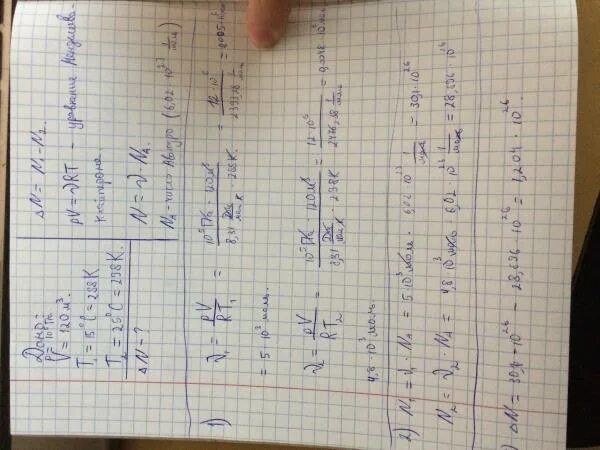 Дано:
p = 10⁵ Па
V = 120 м³.
T₁ = 15°C = 288 K
T₂ = 25°C = 298 K.
ΔN = ?
ΔN = N₁ - N₂.
pV = νRT - уравнение Менделеева-
Клайперона.
N = ν · N_A
N_A - число Авогро (6,02 · 10²³ 1/моль)
1) ν₁ = pV / RT₁ = 10⁵ Па · 120 м³ / 8,31 Дж/моль·К · 288 К = 12 · 10⁶ / 2393,28 1/моль
= 5 · 10³ моль.
ν₂ = pV / RT₂ = 10⁵ Па · 120 м³ / 8,31 Дж/моль·К · 298 К = 12 · 10⁶ / 2476,38 1/моль
4,8 · 10³ моль
2) N₁ = ν₁ · N_A = 5 · 10³ моль · 6,02 · 10²³ 1/моль = 30,1 · 10²⁶
N₂ = ν₂ · N_A = 4,8 · 10³ моль · 6,02 · 10²³ 1/моль = 28,896 · 10²⁶
) ΔN = 30,1 · 10²⁶ - 28,896 · 10²⁶ = 1,204 · 10²⁶.